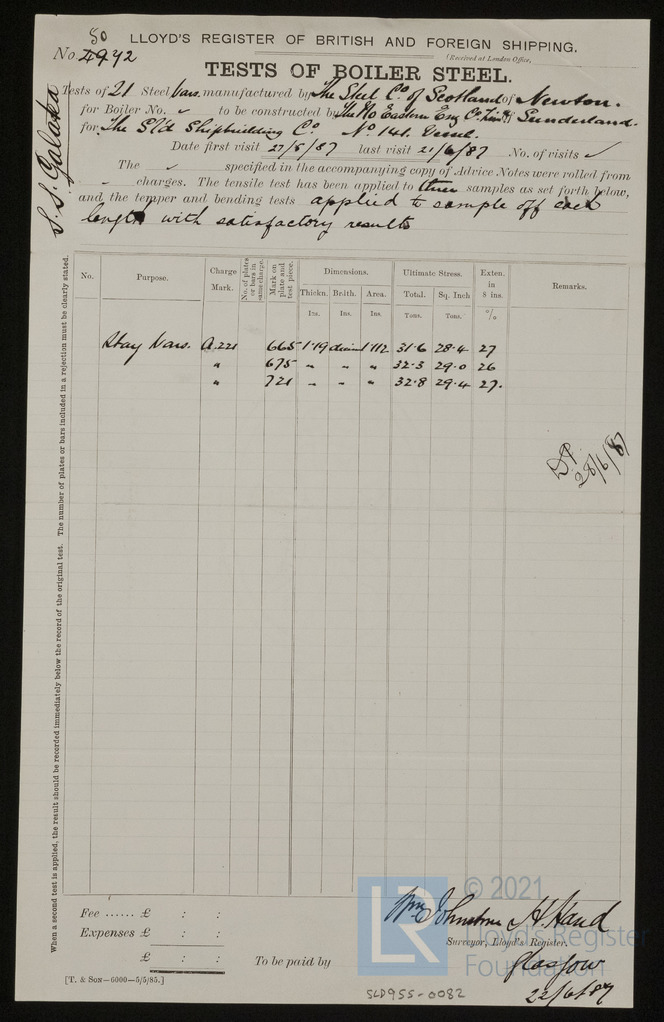 50
LLOYD'S REGISTER OF BRITISH AND FOREIGN SHIPPING.
No. 4942
(Received at London Office,
TESTS OF BOILER STEEL.
Tests of 21 Steel bars manufactured by The Steel Co. of Scotland of Newton.
for Boiler No. ✓ to be constructed by The No Eastern Eng Co. Limd of Sunderland.
for The S'l'd Shipbuilding Co. No 141.
Date first visit 27/5/87 last visit 21/6/87 No. of visits ✓
The ✓ specified in the accompanying copy of Advice Notes were rolled from
charges. The tensile test has been applied to three samples as set forth below,
and the temper and bending tests applied to sample off each
length with satisfactory results
S.S. Galatea
No. Purpose. Charge Mark. No. of plates or bars in same charge. Mark on plate and test piece. Dimensions. Ultimate Stress. Exten. in 8 ins. Remarks.
Thickn. Br.ith. Area. Total. Sq. Inch
Ins. Ins. Ins. Tons. Tons. %
Stay bars. A.221 665 1.19 diam 1.112 31.6 28.4 27
" 675 " " " 32.3 29.0 26
" 721 " " " 32.8 29.4 27.
28/6/87
When a second test is applied, the result should be recorded immediately below the record of the original test. The number of plates or bars included in a rejection must be clearly stated.
Fee ...... £ : :
Expenses £ : :
£ : :
To be paid by
Wm Johnstone H. Hand
Surveyor, Lloyd's Register.
Glasgow
22/6/87
[T. & Son—6000—5/5/85.]
SLD955-0082
LR
© 2021
Lloyd's Register
Foundation